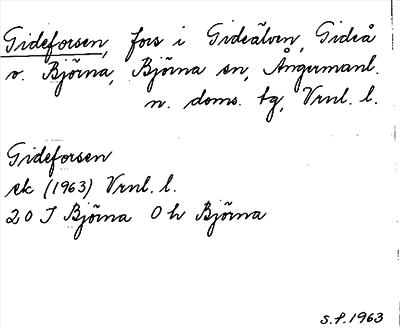 Gideforsen, fors i Gideälven, Gideå
v. Björna, Björna sn, Ångermanl.
n. doms. tg, Vrnl. l.
Gideforsen
ek (1963) Vrnl. l.
20 J Björna 0 h Björna
S.f. 1963